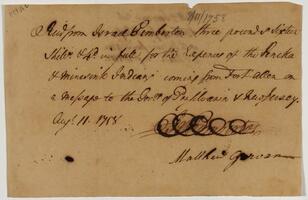 8/11/1758
Rec'd from Israel Pemberton three pounds sixteen
Shill & 4d in full for the Expences of the Seneka
& Minisink Indians coming from Fort Allen on
a Message to the Gov's of Pensilvania & New Jersey
Aug: 11. 1758